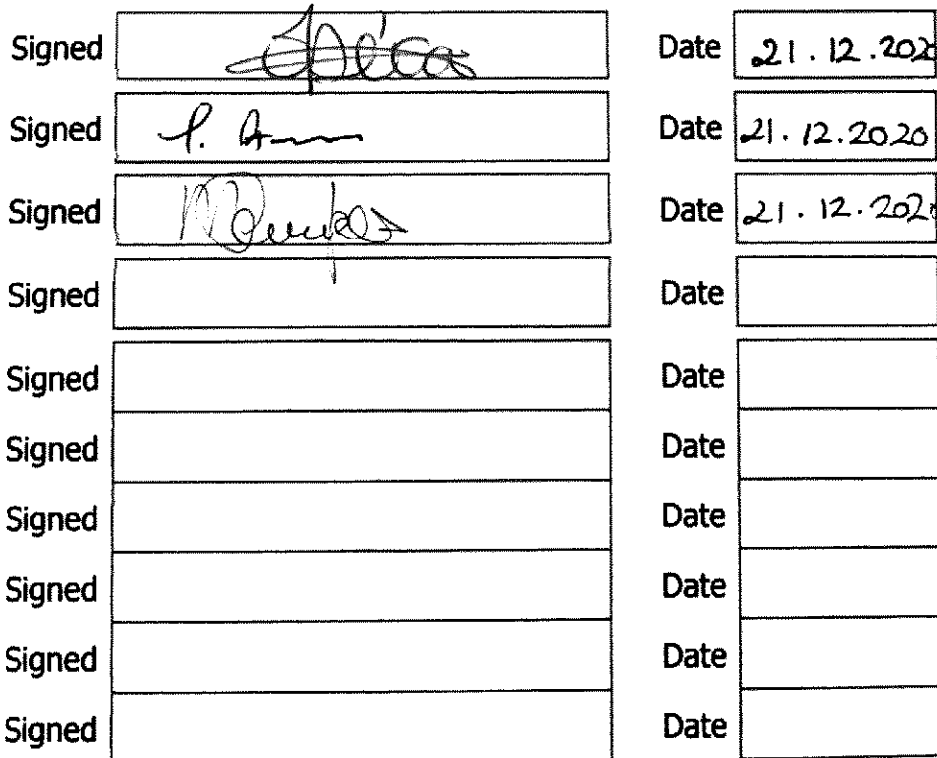 Signed Date 21.12.202
Signed Date 21.12.2020
Signed Date 21.12.202
Signed Date
Signed Date
Signed Date
Signed Date
Signed Date
Signed Date
Signed Date